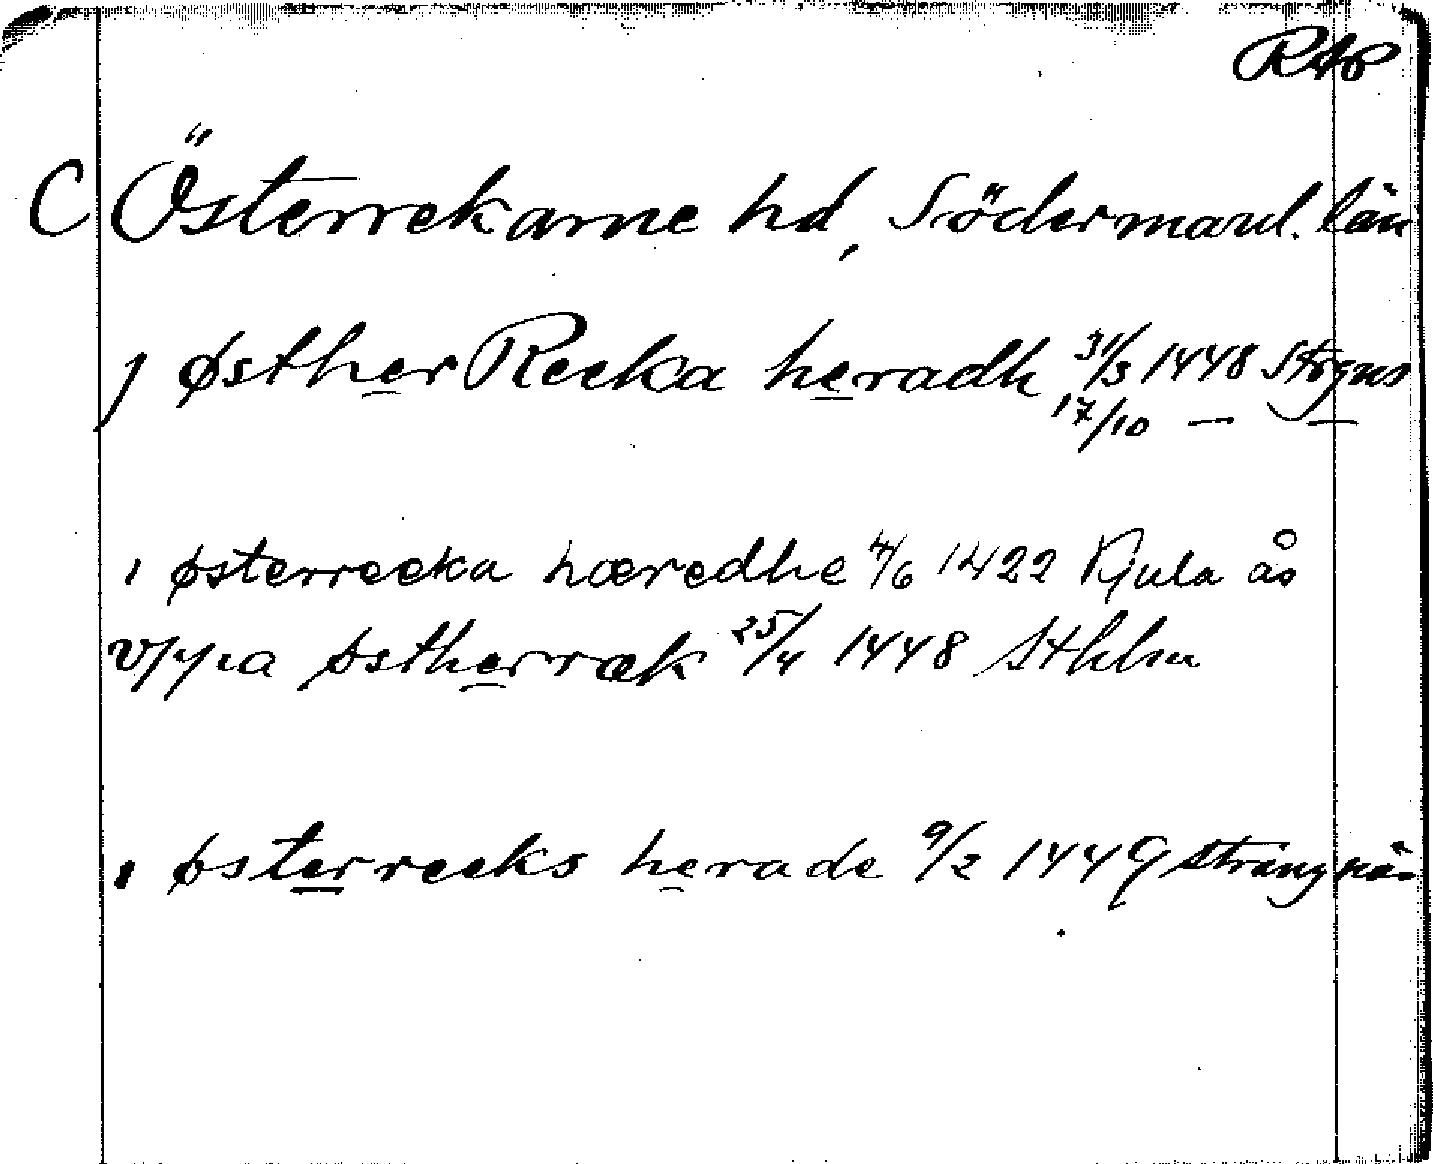 RAp
C Österrekarne hd, Södermanl. län
j østher Recka heradh 31/3 1448 Strgns
17/10 — —
i østerrecka hæredhe 4/6 1422 Kjula ås
vppa østherræk 25/4 1448 Sthlm
i østerrecks herade 9/2 1449 Strängnäs